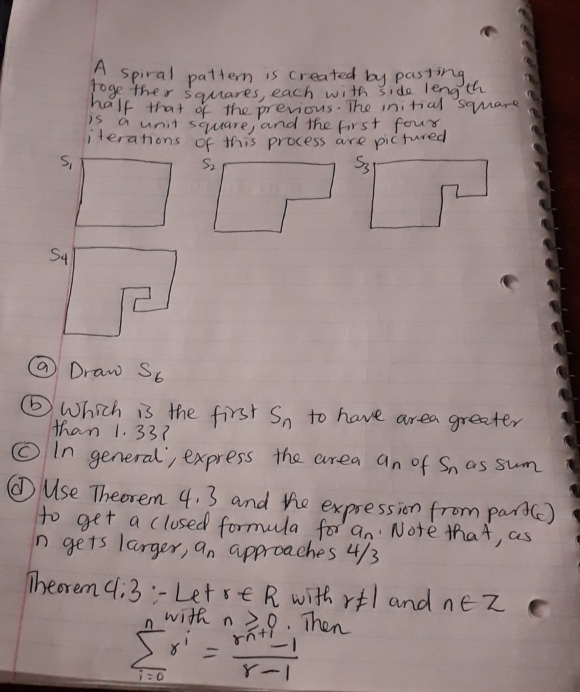 A spiral pattern is created by pasting
together squares, each with side length
half that of the previous. The initial square
is a unit square, and the first four
iterations of this process are pictured
S₁ S₂ S₃
S₄
ⓐ Draw S₆
ⓑ Which is the first Sn to have area greater
than 1.33?
ⓒ In general, express the area an of Sn as sum
ⓓ Use Theorem 4.3 and the expression from part(c)
to get a closed formula for an. Note that, as
n gets larger, an approaches 4/3
Theorem 4.3 :- Let r ∈ R with r≠1 and n ∈ Z
with n ≥ 0. Then
n∑i=0 rⁱ = (rⁿ⁺¹ - 1)/(r - 1)